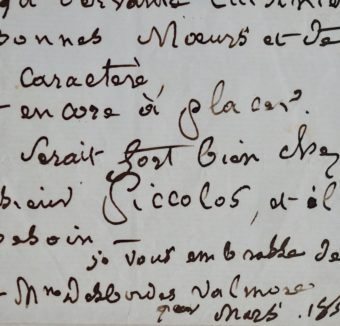 servante cuisiniè
bonnes Mœurs et de
caractère,
encore à placer.
serait fort bien chez
sieur Piccolos, et il
besoin.
je vous embrasse de
Mme Desbordes Valmore
Mars. 185